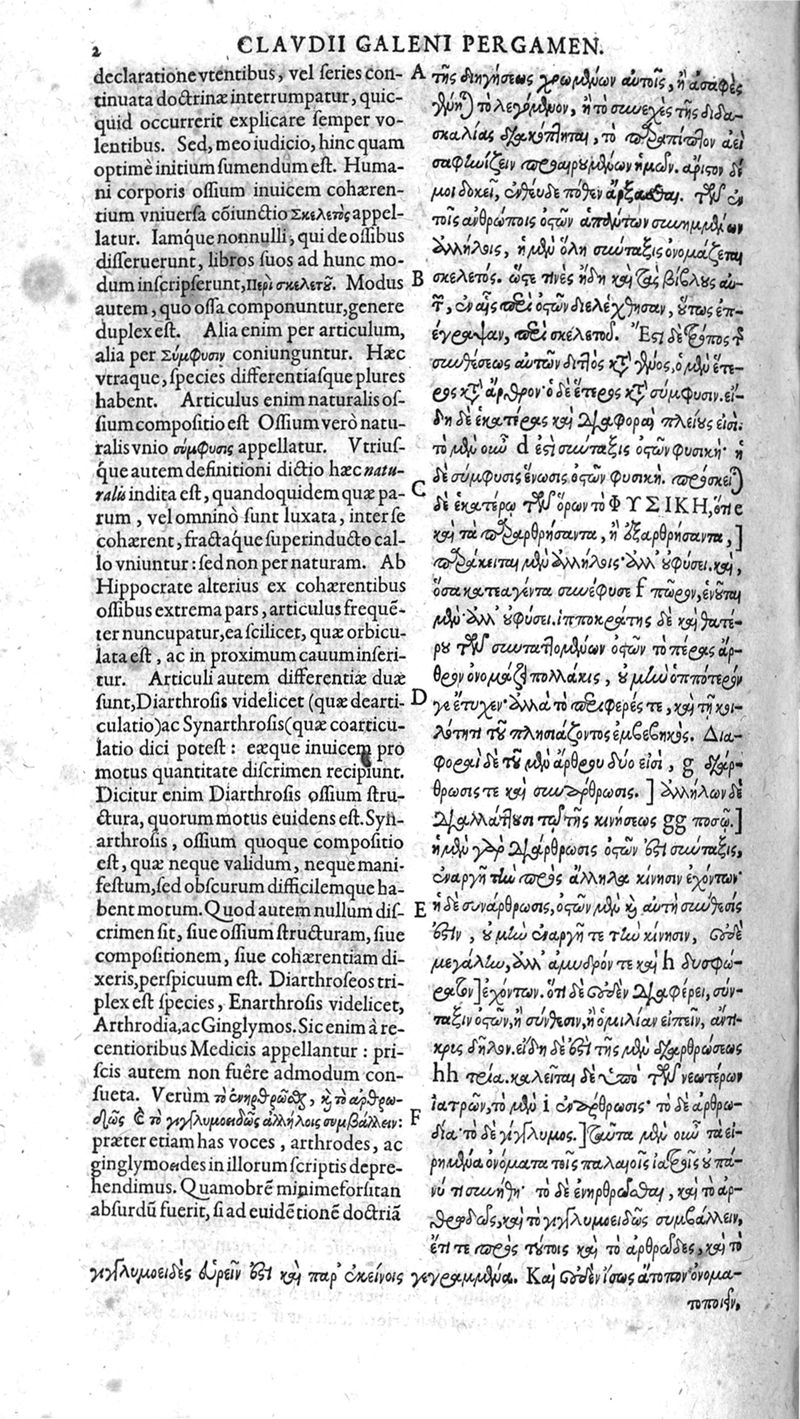 2 CLAVDII GALENI PERGAMEN.
declaratione vtentibus, vel ſeries con-
tinuata doctrinæ interrumpatur, quic-
quid occurrerit explicare ſemper vo-
lentibus. Sed, meo iudicio, hinc quam
optimè initium ſumendum eſt. Huma-
ni corporis oſſium inuicem cohæren-
tium vniuerſa cõiunctio Σκελετὸς appel-
latur. Iamq́ue nonnulli, qui de oſſibus
diſſeruerunt, libros ſuos ad hunc mo-
dum inſcripſerunt, Περὶ σκελετοῦ. Modus
autem, quo oſſa componuntur, genere
duplex eſt. Alia enim per articulum,
alia per Σύμφυσιν coniunguntur. Hæc
vtraque, ſpecies differentiaſque plures
habent. Articulus enim naturalis oſ-
ſium compoſitio eſt Oſſium verò natu-
ralis vnio σύμφυσις appellatur. Vtriuſ-
q́ue autem definitioni dictio hæc natu-
ralis indita eſt, quandoquidem quæ pa-
rum, vel omninò ſunt luxata, inter ſe
cohærent, fractaque ſuperinducto cal-
lo vniuntur: ſed non per naturam. Ab
Hippocrate alterius ex cohærentibus
oſſibus extrema pars, articulus frequẽ-
ter nuncupatur, ea ſcilicet, quæ orbicu-
lata eſt, ac in proximum cauum inſeri-
tur. Articuli autem differentiæ duæ
ſunt, Diarthroſis videlicet (quæ dearti-
culatio) ac Synarthroſis (quæ coarticu-
latio dici poteſt: eæque inuicem pro
motus quantitate diſcrimen recipiunt.
Dicitur enim Diarthroſis oſſium ſtru-
ctura, quorum motus euidens eſt. Syn-
arthroſis, oſſium quoque compoſitio
eſt, quæ neque validum, neque mani-
feſtum, ſed obſcurum difficilemque ha-
bent motum. Quod autem nullum diſ-
crimen ſit, ſiue oſſium ſtructuram, ſiue
compoſitionem, ſiue cohærentiam di-
xeris, perſpicuum eſt. Diarthroſeos tri-
plex eſt ſpecies, Enarthroſis videlicet,
Arthrodia, ac Ginglymos. Sic enim à re-
centioribus Medicis appellantur: pri-
ſcis autem non fuêre admodum con-
ſueta. Verùm τὸ ἐνηρθρῶσθαι, καὶ τὸ ἀρθρω-
δῶς & τὸ γιγγλυμοειδῶς ἀλλήλοις συμβάλλειν:
præter etiam has voces, arthrodes, ac
ginglymoeides in illorum ſcriptis depre-
hendimus. Quamobrẽ minime forſitan
abſurdũ fuerit, ſi ad euidẽtionẽ doctriã
A
B
C
D
E
F
τῆς διηγήσεως χρωμένων αὐτοῖς, ἢ ἀσαφὲς
γένηται τὸ λεγόμενον, ἢ τὸ συνεχὲς τῆς διδα-
σκαλίας διακόπτηται, τὸ παραπίπτον ἀεὶ
σαφηνίζειν προαιρουμένων ἡμῶν. ἄριστον δέ
μοι δοκεῖ, ἐνθένδε ποθὲν ἄρξασθαι. τῶν ἐν
τοῖς ἀνθρώποις ὀστῶν ἁπάντων συνημμένων
ἀλλήλοις, ἡ μὲν ὅλη σύνταξις ὀνομάζεται
σκελετός. ὥστε τινὲς ἤδη καὶ τὰς βίβλους αὐ-
τῶν, ἐν αἷς περὶ ὀστῶν διελέχθησαν, οὕτως ἐπ-
έγραψαν, περὶ σκελετοῦ. Ἔστι δὲ τρόπος τῆς
συνθέσεως αὐτῶν διττὸς κατὰ γένος, ὁ μὲν ἕτε-
ρος κατὰ ἄρθρον· ὁ δὲ ἕτερος κατὰ σύμφυσιν. εἴ-
δη δὲ ἑκατέρας καὶ διαφοραὶ πλείους εἰσί.
τὸ μὲν οὖν d ἐστὶ σύνταξις ὀστῶν φυσική· ἡ
δὲ σύμφυσις ἕνωσις ὀστῶν φυσική. πρόσκειται
δὲ ἑκατέρῳ τῶν ὅρων τὸ ΦΥΣΙΚΗ, ὅτι e
καὶ τὰ παραρθρήσαντα, ἢ ἐξαρθρήσαντα, ]
παράκειται μὲν ἀλλήλοις· ἀλλ' οὐ φύσει. καὶ,
ὅσα κατεαγέντα συνέφυσε f πῶρον, ἑνοῦται
μέν· ἀλλ' οὐ φύσει. ἱπποκράτης δὲ καὶ θατέ-
ρου τῶν συνταττομένων ὀστῶν τὸ πέρας ἄρ-
θρον ὀνομάζει πολλάκις, οὐ μὴν ὁπότερόν
γε ἔτυχεν· ἀλλὰ τὸ περιφερές τε, καὶ τῇ κοι-
λότητι τοῦ πλησιάζοντος ἐμβεβηκός. Δια-
φοραὶ δὲ τοῦ μὲν ἄρθρου δύο εἰσὶ, g διάρ-
θρωσίς τε καὶ συνάρθρωσις. ] ἀλλήλων δὲ
διαλλάττουσι τῷ τῆς κινήσεως gg ποσῷ. ]
ἡ μὲν γὰρ διάρθρωσις ὀστῶν ἐστὶ σύνταξις,
ἐναργῆ τὴν πρὸς ἄλληλα κίνησιν ἐχόντων·
ἡ δὲ συνάρθρωσις, ὀστῶν μὲν καὶ αὐτὴ σύνθεσίς
ἐστιν, οὐ μὴν ἐναργῆ τε τὴν κίνησιν, οὐδὲ
μεγάλην, ἀλλ' ἀμυδρόν τε καὶ h δυσφώ-
ρατον ] ἐχόντων. ὅτι δὲ οὐδὲν διαφέρει, σύν-
ταξιν ὀστῶν, ἢ σύνθεσιν, ἢ ὁμιλίαν εἰπεῖν, ἄντι-
κρις δῆλον. εἴδη δέ ἐστι τῆς μὲν διαρθρώσεως
hh τρία. καλεῖται δὲ ὑπὸ τῶν νεωτέρων
ἰατρῶν, τὸ μὲν i ἐνάρθρωσις· τὸ δὲ ἀρθρω-
δία· τὸ δὲ γίγγλυμος. ] ταῦτα μὲν οὖν τὰ εἰ-
ρημένα ὀνόματα τοῖς παλαιοῖς ἰατροῖς οὐ πά-
νυ τι συνήθη· τὸ δὲ ἐνηρθρῶσθαι, καὶ τὸ ἀρ-
θρωδῶς, καὶ τὸ γιγγλυμοειδῶς συμβάλλειν,
ἔτι τε πρὸς τούτοις καὶ τὸ ἀρθρῶδες, καὶ τὸ
γιγγλυμοειδὲς εὑρεῖν ἐστὶ καὶ παρ' ἐκείνοις γεγραμμένα. Καὶ οὐδὲν ἴσως ἄτοπον ὀνομα-
τοποιεῖν,